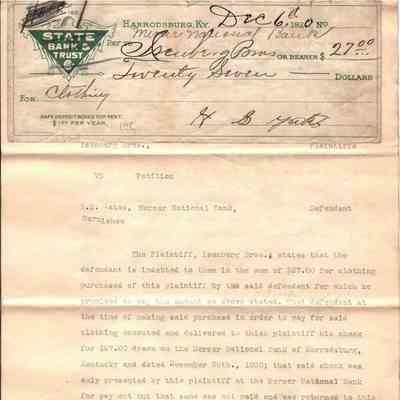 HARRODSBURG, KY. Dec 6th 1920 No
STATE
BANK &
TRUST
Co
Mercer National Bank
PAY Isenburg Bros OR BEARER $27.00
Twenty Seven DOLLARS
FOR Clothing
SAFE DEPOSIT BOXES FOR RENT.
$1.00 PER YEAR.
Isenburg Bros., Plaintiffs
VS Petition
Yates, Mercer National Bank, Defendant
The Plaintiff, Isenburg Bros., states that the
defendant is indebted to them in the sum of $27.00 for clothing
purchased of this plaintiff by the said defendant for which he
promised to pay the amount as above stated. That defendant at
the time of making said purchase in order to pay for said
clothing executed and delivered to this plaintiff his check
for $27.00 drawn on the Mercer National Bank of Harrodsburg,
Kentucky and dated 1920; that said check was
duly presented by this plaintiff at the Mercer National Bank
for payment but that same was not paid and was returned to this